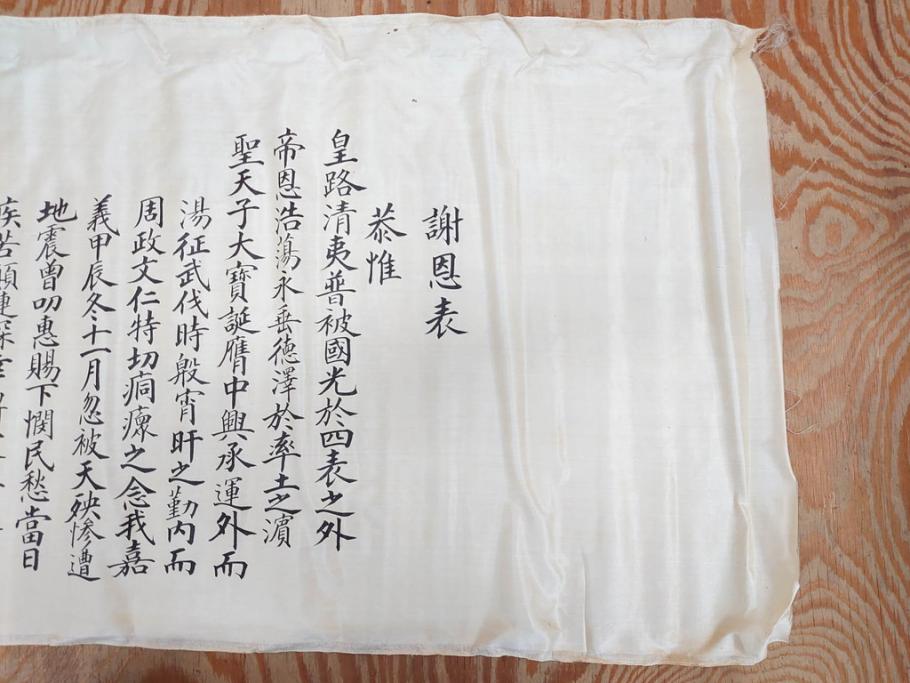 謝恩表
恭惟
皇路清夷普被國光於四表之外
帝恩浩蕩永垂德澤於率土之濵
聖天子大寶誕膺中興承運外而
湯征武伐時殷宵旰之勤内而
周政文仁特切痌瘝之念我嘉
義甲辰冬十一月忽被天殃慘遭
地震曾叨惠賜下憫民愁當日
疾苦顛連深